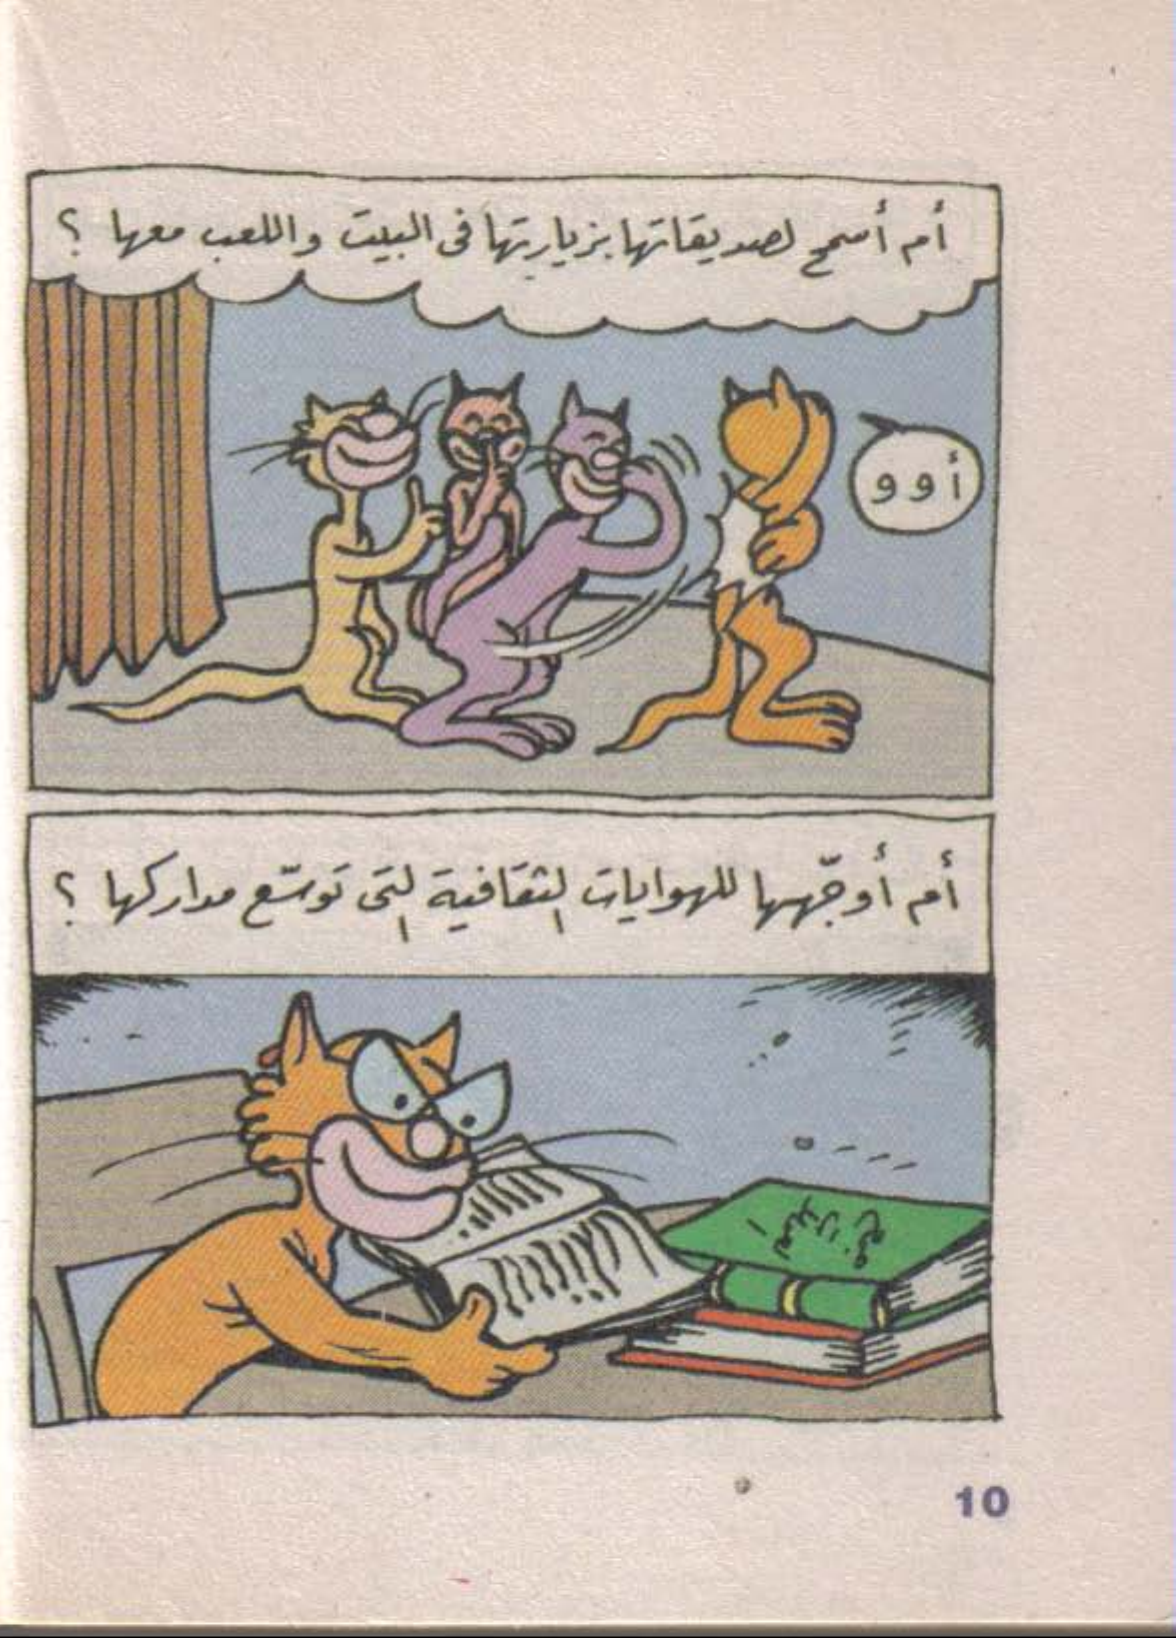 أم أسمح لصديقاتها بزيارتها فى البيت واللعب معها ؟
أ و و
أم أوجّهها للهوايات الثقافية التى توسّع مداركها ؟
10